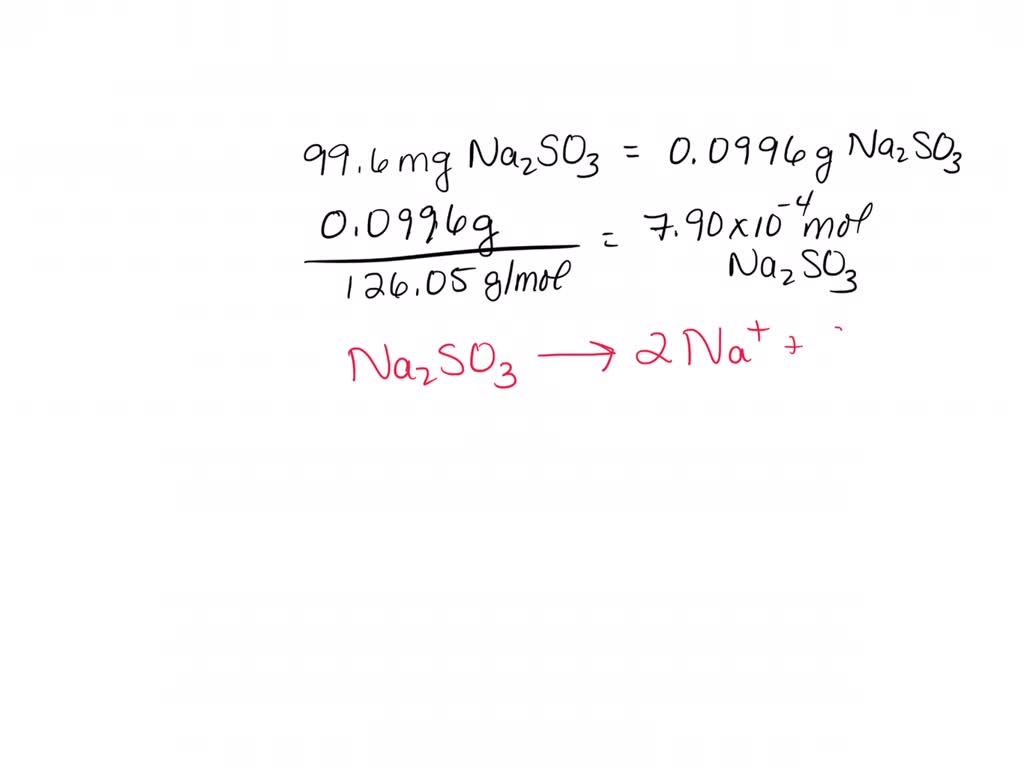 99.6 mg Na₂SO₃ = 0.0996 g Na₂SO₃
0.0996g / 126.05 g/mol = 7.90 x 10⁻⁴ mol
Na₂SO₃
Na₂SO₃ → 2 Na⁺ +